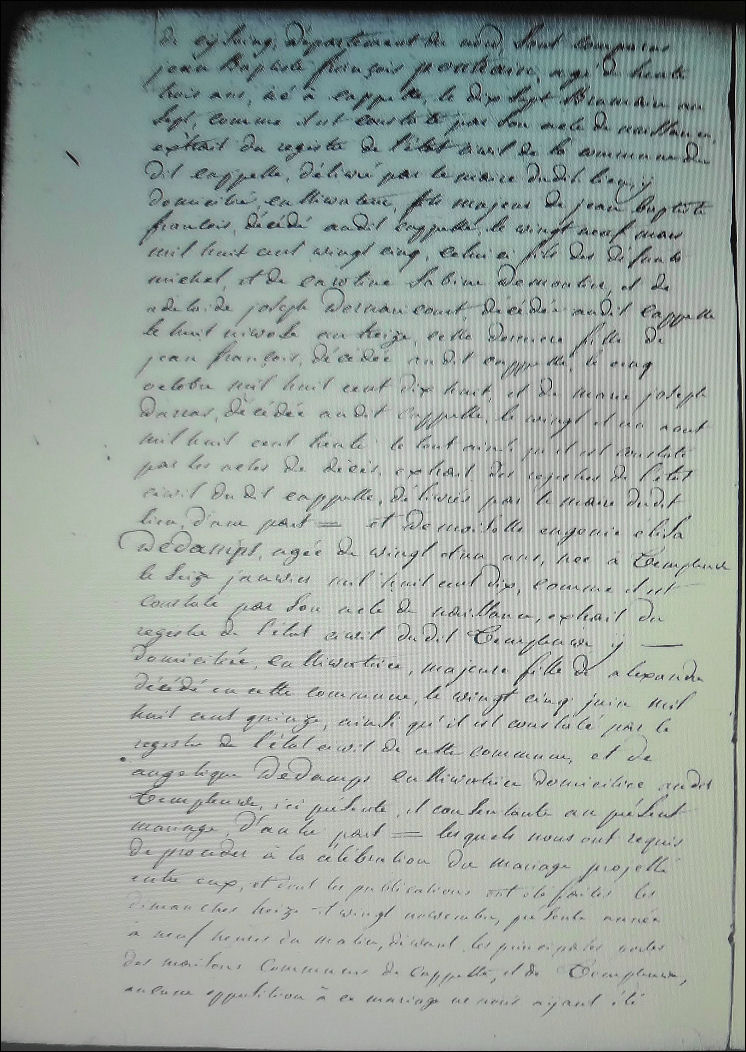 de cysoing, département du nord, sont comparus
jean Baptiste françois ponthieu, agé de trente
trois ans, né à cappelle, le dix sept Brumaire an
sept, comme il est constaté par son acte de naissance,
extrait du registre de l'état civil de la commune du
dit cappelle, délivré par le maire dudit lieu, y
domicilié, cultivateur, fils majeur de jean baptiste
françois, décédé audit cappelle, le vingt neuf mars
mil huit cent vingt cinq, celui ci fils des défunts
michel, et de caroline Sabine Demontier, et de
adelaide joseph Dernaucourt, décédée audit cappelle
le huit nivose an treize, cette derniere fille de
jean françois, décédé audit cappelle, le cinq
octobre mil huit cent dix huit, et de marie joseph
Darras, décédée audit Cappelle, le vingt et un aout
mil huit cent trente le tout ainsi qu'il est constaté
par les actes de décès, extrait des registres de l'état
civil du dit cappelle, délivrés par le maire dudit
lieu, d'une part = et Demoiselle eugenie elisa
Dedamps, agée de vingt et un ans, née à Templeuve
le seize janvier mil huit cent dix, comme il est
constaté par son acte de naissance, extrait du
registre de l'état civil dudit Templeuve y —
domiciliée, cultivatrice, majeure fille de alexandre
décédé en cette commune, le vingt cinq juin mil
huit cent quinze, ainsi qu'il est constaté par le
registre de l'état civil de cette commune, et de
angelique Dedamps cultivatrice domiciliée audit
Templeuve, ici présente, et consentante au présent
mariage, d'autre part = lesquels nous ont requis
de proceder à la célébration du mariage projetté
entre eux, et dont les publications ont été faites les
dimanches treize et vingt novembre, présente année
à neuf heures du matin, devant les principales portes
des maisons Communes de Cappelle, et de Templeuve,
aucune opposition à ce mariage ne nous ayant été